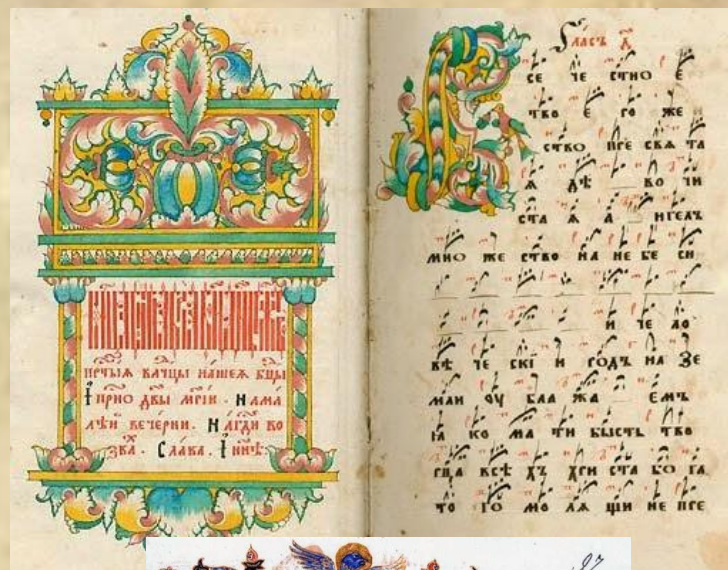 прⷭ҇тыѧ влⷣчцы нашеѧ бцы
і прⷭ҇но дв҃ы мр҃іи . на ма
лѣй вечерни . на гдⷭ҇и во
зва . Слава . І нн҃ѣ
Гласъ д҃
се че стно е
тво е го же
ство пре свѧ та
ѧ дѣ во чи
ста ѧ а нгелъ
мно же ство на не бе си
и че ло
вѣ че скі и родъ на зе
мли оу бла жа емъ
ꙗ ко ма ти бысть тво
рца всѣ хъ хри ста бо га
то го мо лѧ щи не пре